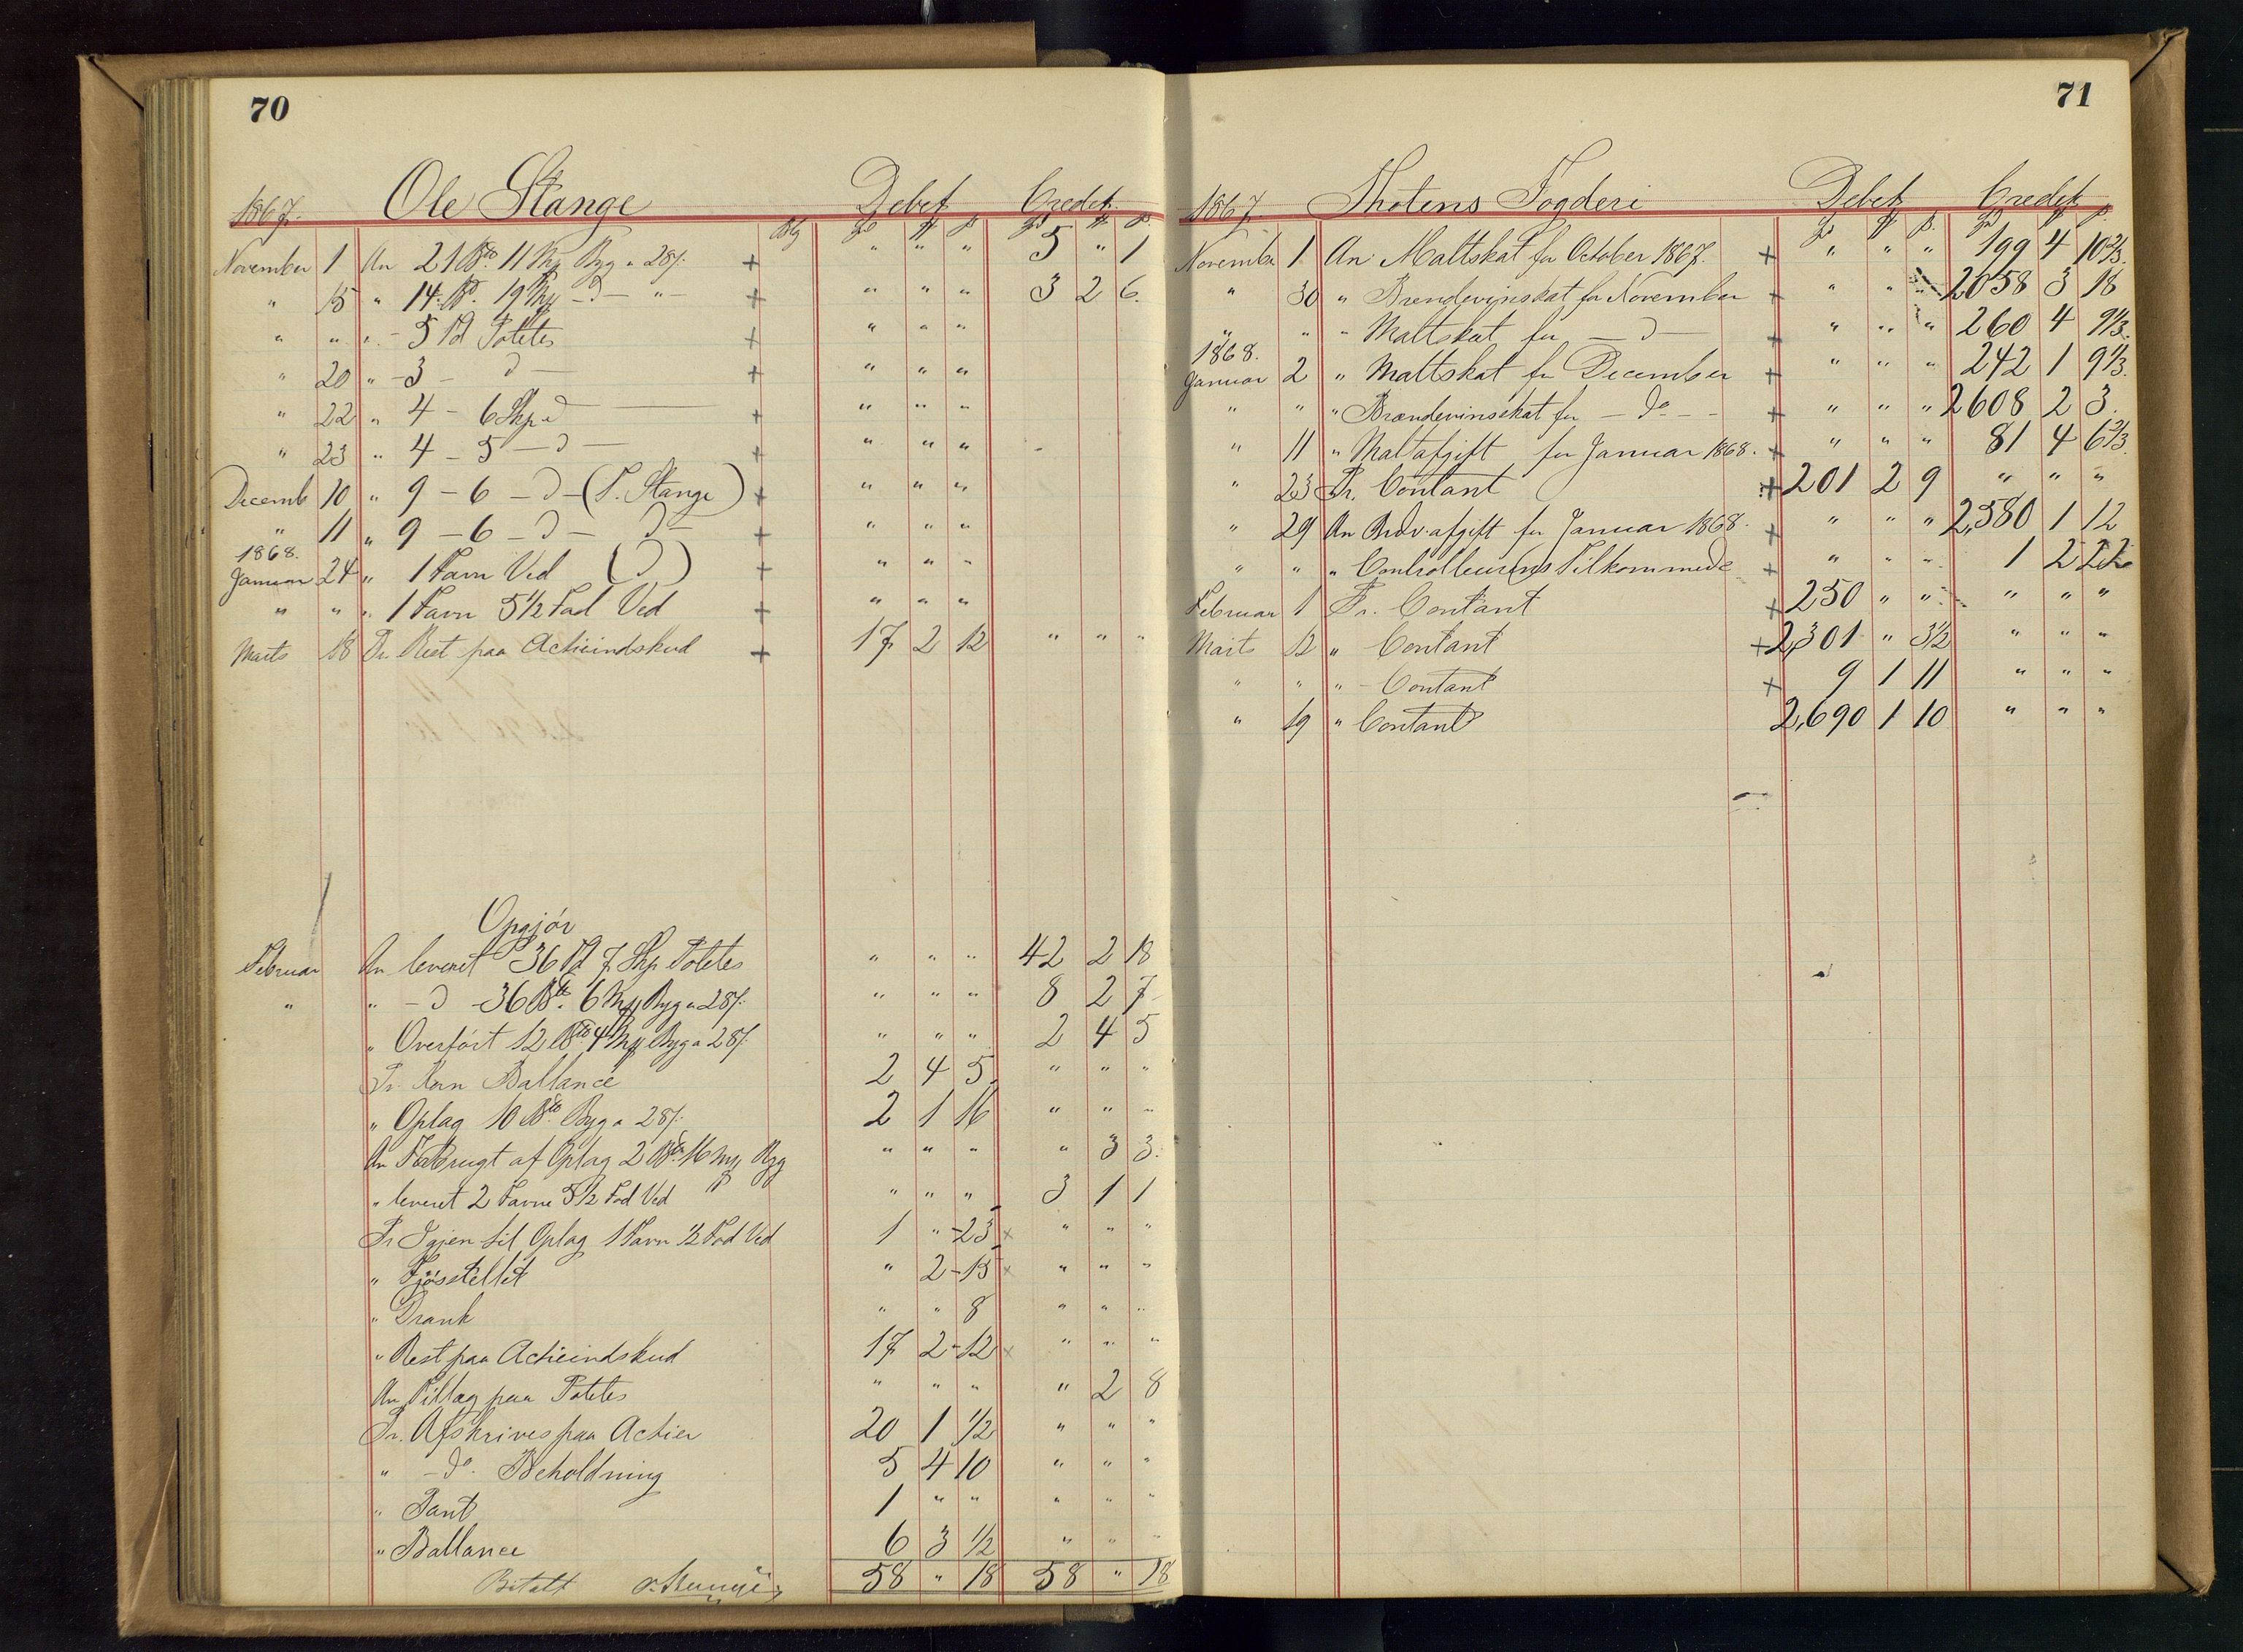 70
1867. Ole Stange Debet Credet
November 1 An 21 Bdo. 11 Mk Byg a 28/. + " " " 5 " 1
" 15 " 14 Bd. 19 Mk - d - " - + " " " 3 2 6.
" " " - 5 Td Potetes + " " "
" 20 " - 3 - d - + " " "
" 22 " 4 - 6 Skp d + " " "
" 23 " 4 - 5 - d - + " " "
Decemb 10 " 9 - 6 - d - (P. Stange) + " " "
" 11 " 9 - 6 - d - d - + " " "
1868.
Januar 24 " 1 Favn Ved (d) + " " "
" " " 1 Favn 5 1/2 Fod Ved + " " "
Marts 18 Pr. Rest paa Actieindskud + 17 2 12 " " "
Opgjör
Februar An leveret 36 Td 7 Skp Potetes " " " 42 2 18
" " - d - 36 Bdo. 6 Mk Byg a 28/. " " " 8 2 7
" Overfört 12 Bdo 4 Mk Byg a 28/. " " " 2 4 5
Pr. Korn Ballance 2 4 5. " " "
" Oplag 10 Bdo Byg a 28/. 2 1 16 " " "
An Forbrugt af Oplag 2 Bdo. 16 Mk Byg " " " " 3 3.
" leveret 2 Favne 5 1/2 Fod Ved " " " 3 1 1
Pr Igjen til Oplag 1 Favn 1/2 Fod Ved 1 " - 23 × " " "
" Fjösstellet " 2 - 15 × " " "
" Drank " " 8 " " "
" Rest paa Actieindskud 17 2 - 12 × " " "
An Tillæg paa Potetes " " " " 2 8
Pr. Afskrives paa Actier 20 1 1/2 " " "
" - do. Beholdning 5 4 10 " " "
" Pant 1 " " " " "
" Ballance 6 3 1/2 " " "
Bitalt 58 " 18 58 " 18
71
1867. Thotens Fogderi Debet Credet
Novembe 1 An Maltskat for October 1867. + " " " 199 4 10 2/3.
" 30 " Brendevinskat for November + " " " 2058 3 18
" " " Maltskat for - d - + " " " 260 4 9 1/3.
1868.
Januar 2 " Maltskat for December + " " " 242 1 9 1/3.
" " " Brændevinskat for - do - - + " " " 2608 2 3.
" 11 " Maltafgift for Januar 1868. + " " " 81 4 6 2/3.
" 23 Pr. Contant + 201 2 9 " " "
" 29 An Brdv.afgift for Januar 1868. + " " " 2,580 1 12
" " " Controlleurens Tilkommede + " " " 1 2 22
Februar 1 Pr. Contant + 250 " " " " "
Marts 12 " Contant + 2,301 " 3 1/2 " " "
" " " - Contant + 9 1 11 " " "
" 19 " Contant 2,690 1 10 " " "